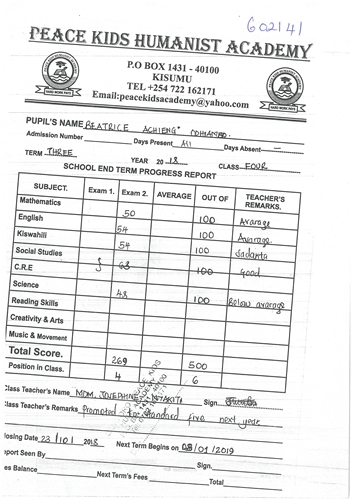 602141
PEACE KIDS HUMANIST ACADEMY
P.O BOX 1431 - 40100
KISUMU
TEL +254 722 162171
Email:peacekidsacademy@yahoo.com
HARD WORK PAYS
HARD WORK PAYS
PUPIL'S NAME BEATRICE ACHIENG'
Admission Number Days Present All Days Absent —
TERM THREE YEAR 2018 CLASS FOUR
SCHOOL END TERM PROGRESS REPORT
SUBJECT. Exam 1. Exam 2. AVERAGE OUT OF TEACHER'S REMARKS.
Mathematics 50 100 Avarage
English 54 100 Avarage
Kiswahili 54 100
Social Studies
C.R.E 63 100 Good
Science 48 100 Below avarage
Reading Skills
Creativity & Arts
Music & Movement
Total Score. 269 500
Position in Class. 4 6
Class Teacher's Name MDM. JOSEPHINE Sign.
Class Teacher's Remarks Promoted to standard five next year
losing Date 23/10/2018 Next Term Begins on 03/01/2019
port Seen By Sign.
es Balance Next Term's Fees Total